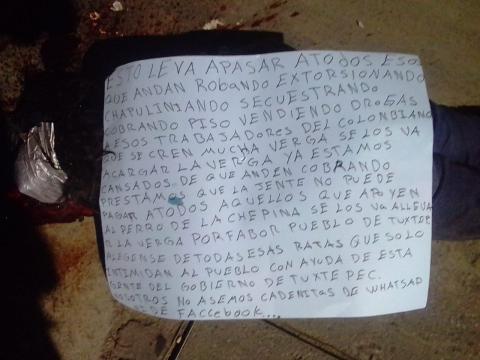 ESTO LEVA APASAR ATODOS ESO
QUE ANDAN ROBANDO EXTORSIONANDO
CHAPULINIANDO SECUESTRANDO
COBRANDO PISO VENDIENDO DROGAS
ESOS TRABAJADORES DEL COLOMBIANO
QUE SE CREN MUCHA VERGA SE LOS VA
ACARGAR LA VERGA YA ESTAMOS
CANSADOS DE QUE ANDEN COBRANDO
PRESTAMOS QUE LA JENTE NO PUEDE
PAGAR ATODOS AQUELLOS QUE APOYEN
AL PERRO DE LA CHEPINA SE LOS VA ALLEVA
R LA VERGA PORFABOR PUEBLO DE TUXTEP
ALEGENSE DETODAS ESAS RATAS QUE SOLO
INTIMIDAN AL PUEBLO CON AYUDA DE ESTA
GENTE DEL GOBIERNO DE TUXTEPEC.
NOSOTROS NO ASEMOS CADENITAS DE WHATSAP
DE FACCEBOOK...